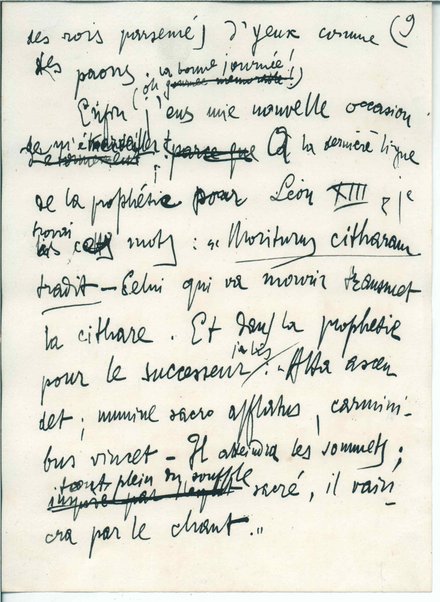 des rois parsemés d'yeux comme (9
des paons.
(oh la bonne journée!
journée mémorable!)
Enfin j'eus une nouvelle occasion
de m'émerveiller :
d'étonnement parce que À la dernière ligne
de la prophétie pour Léon XIII je
trouvai
les ces mots : "Moriturus citharam
tradit – Celui qui va mourir transmet
la cithare. Et dans la prophétie
pour le successeur, je lis : "Alta ascen
det ; numine sacro afflatus, carmini-
bus vincet – Il atteindra les sommets ;
tout plein du souffle
inspiré par l'esprit sacré, il vain-
cra par le chant."